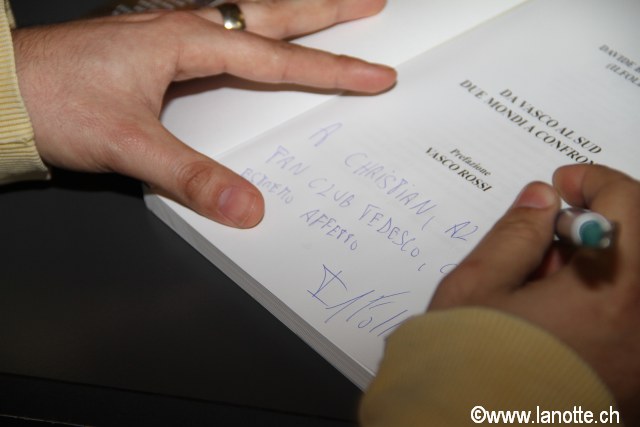 DAVIDE
(IL
DA VASCO AL SUD
DUE MONDI A CONFRON
Prefazione
VASCO ROSSI
A CHRISTIAN, AL
FAN CLUB TEDESCO, C
ESTREMO AFFETTO
©www.lanotte.ch